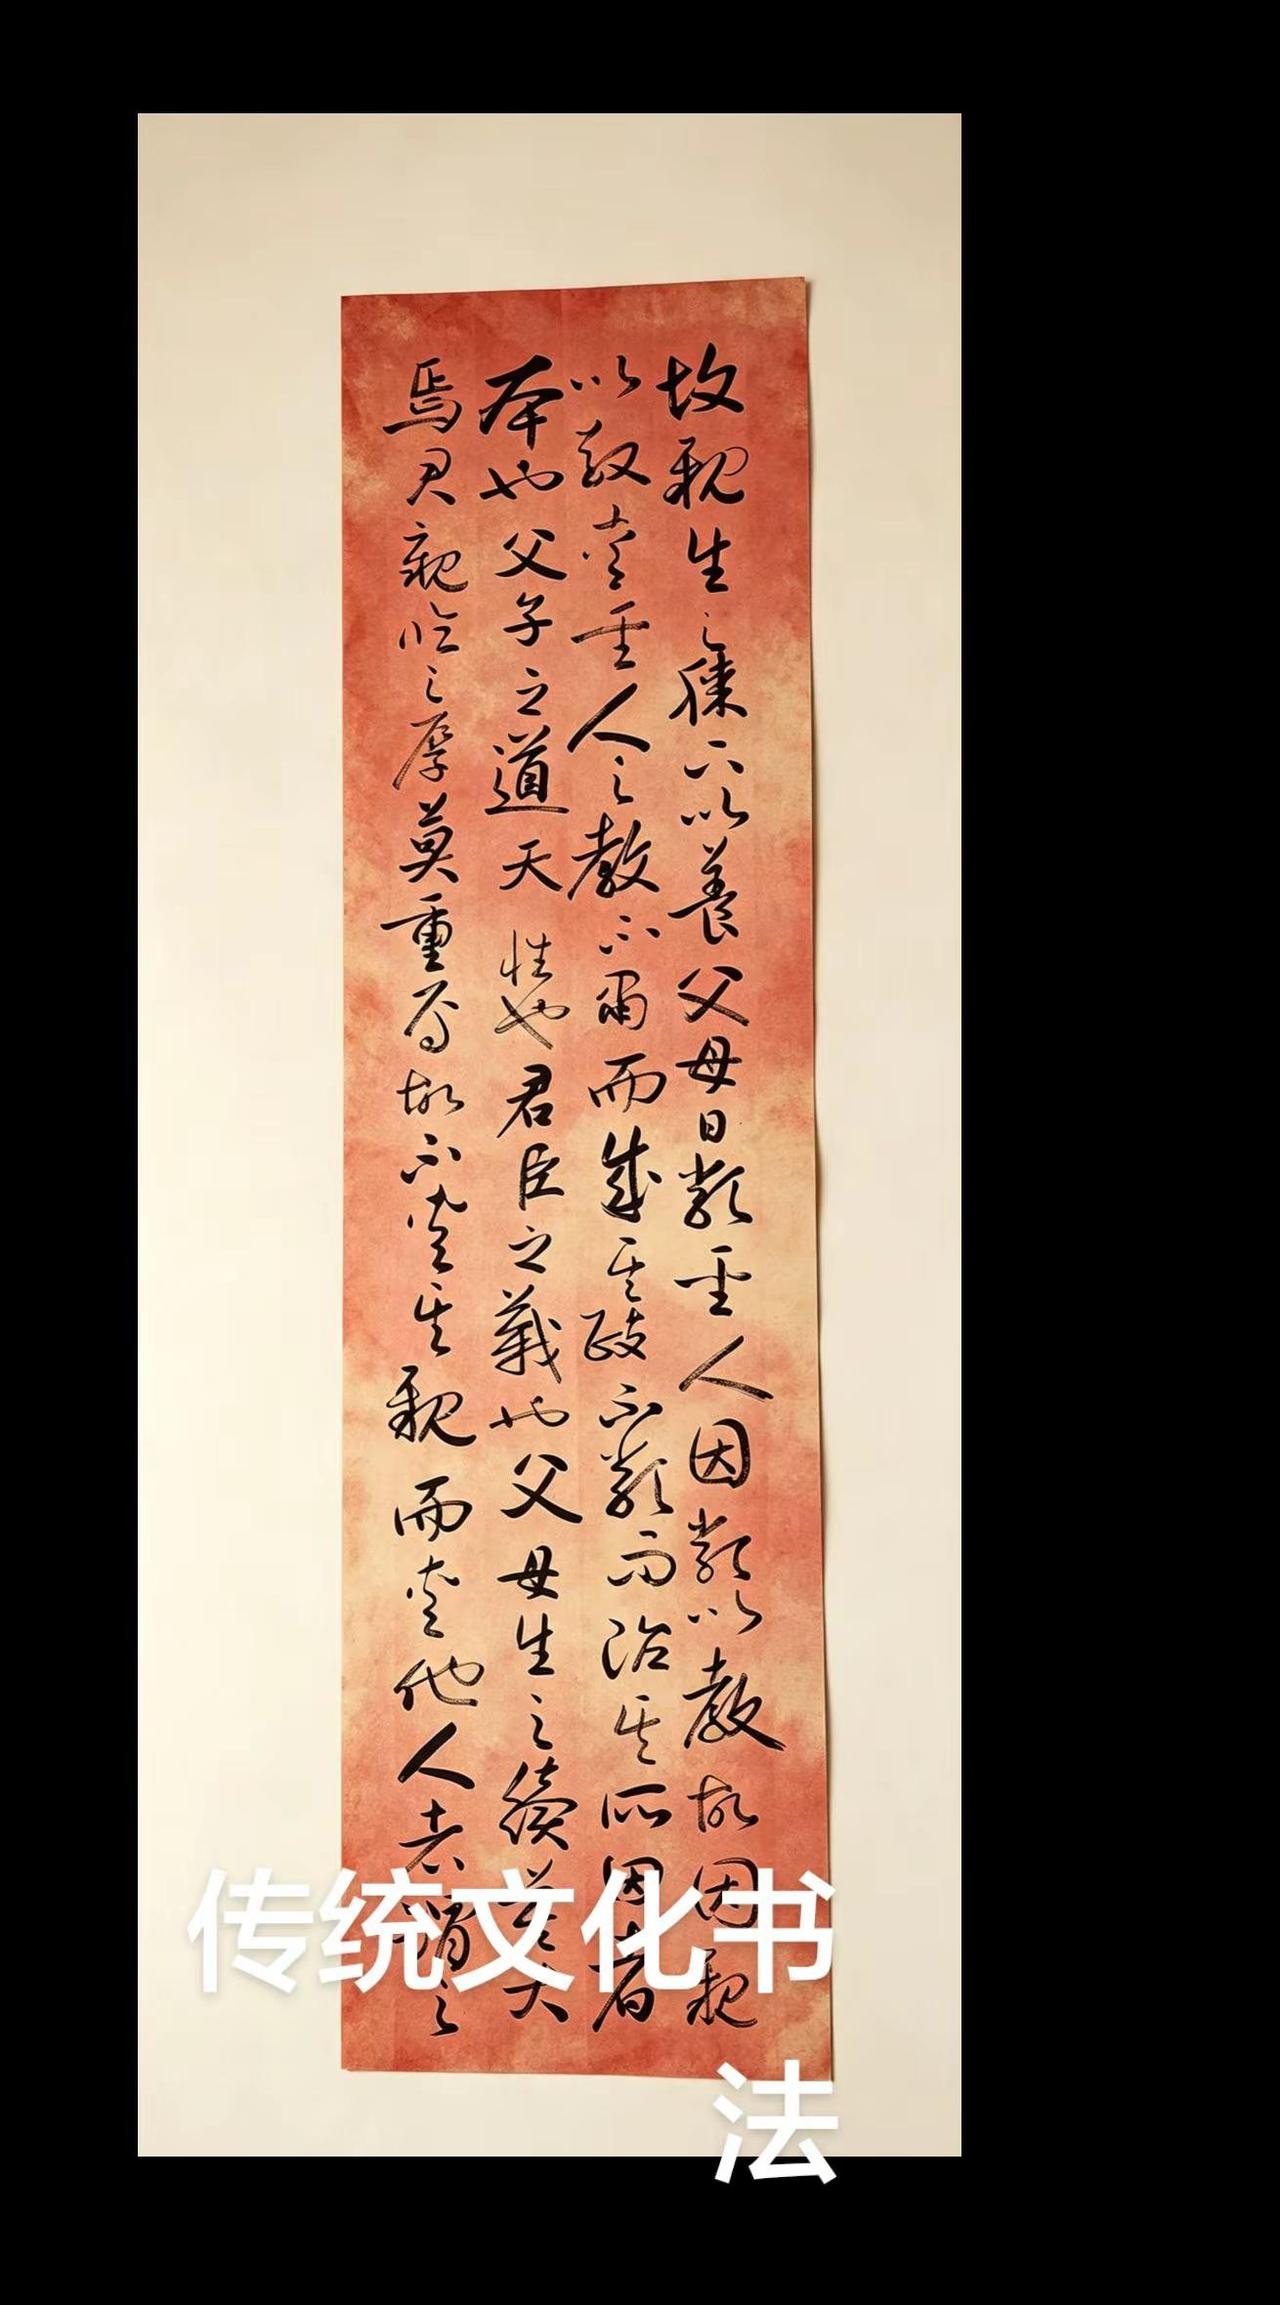 故親生之膝下以養父母日嚴聖人因嚴以教敬因親
以教愛聖人之教不肅而成其政不嚴而治其所因者
本也父子之道天性也君臣之義也父母生之續莫大
焉君親臨之厚莫重焉故不愛其親而愛他人者謂之
传统文化书
法